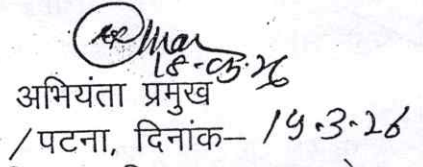 18-03-26
अभियंता प्रमुख
/पटना, दिनांक– 19.3.26